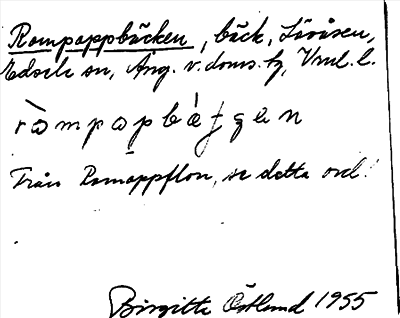 Rompappbäcken, bäck, Lövåsen,
Edsele sn, Ång. v. doms. tg, Vnl. l.
ròmpapbä́ʈʂen
Från Romappflon, se detta ord.
Birgitta Östlund 1955